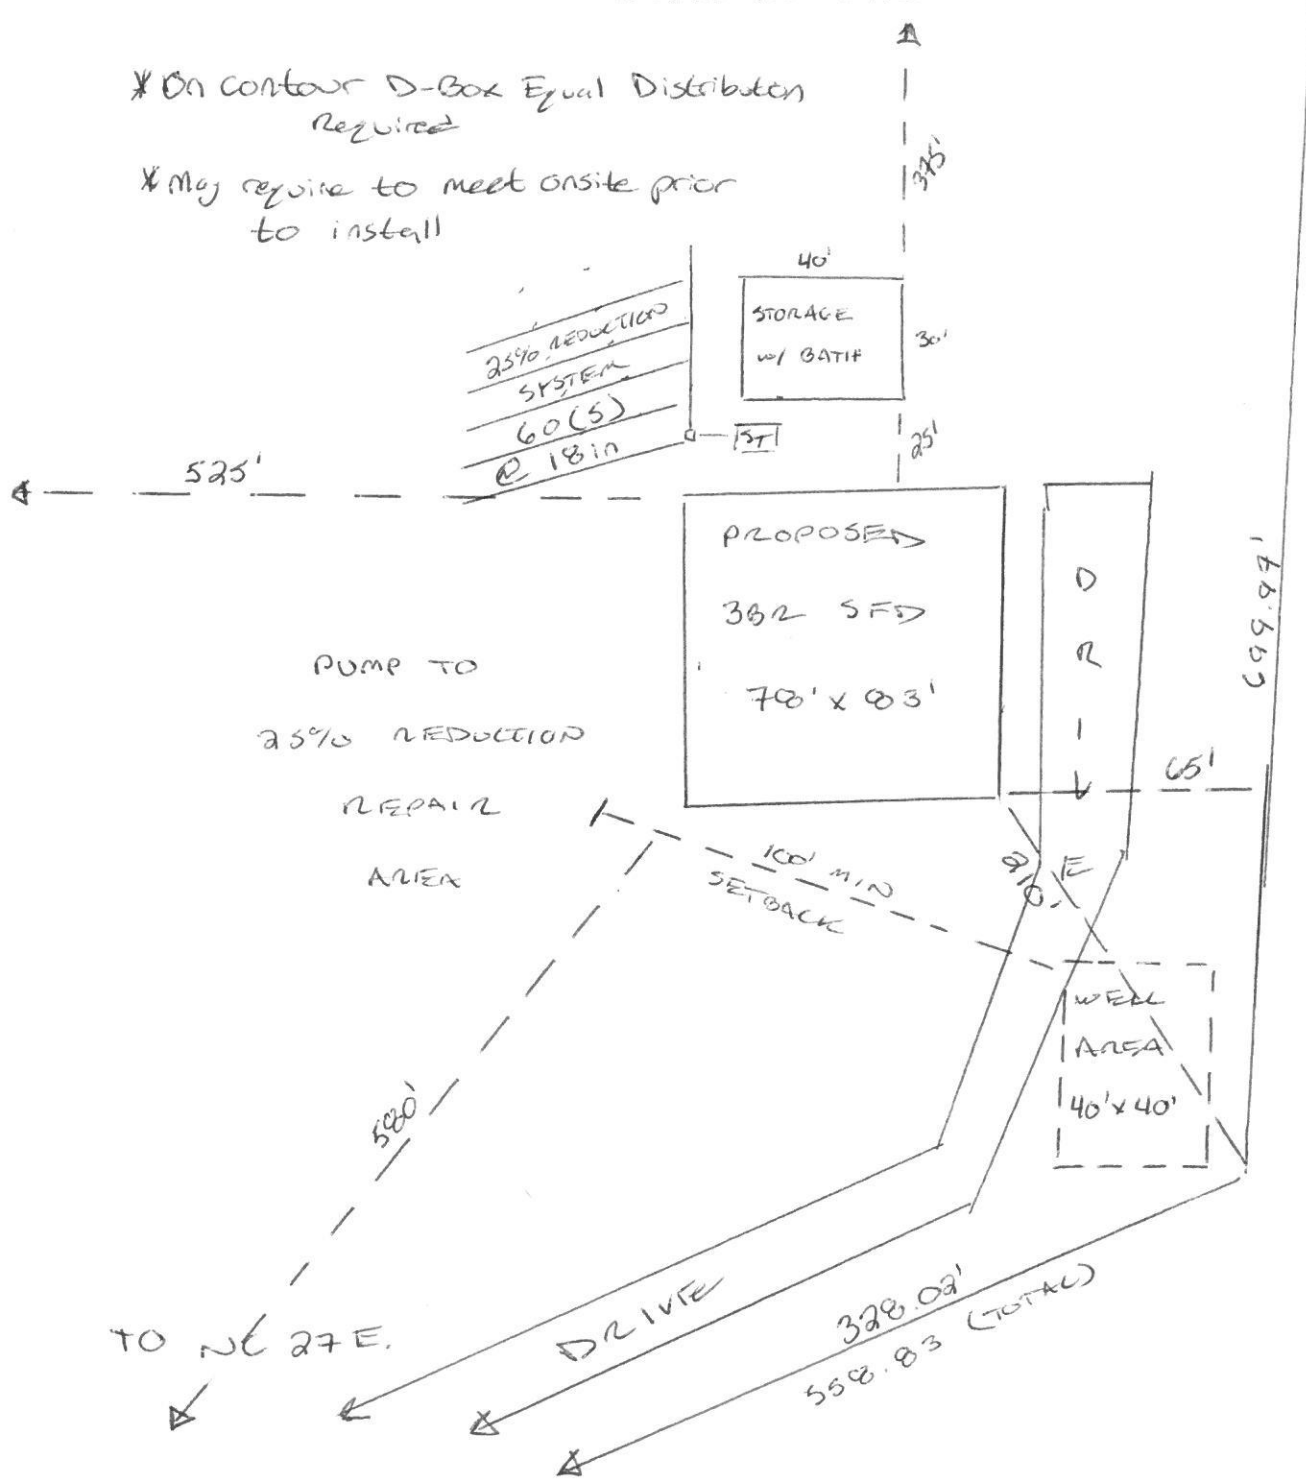 * On contour D-Box Equal Distribution
Required
* May require to meet onsite prior
to install
375'
40'
STORAGE
w/ BATH
30'
25% REDUCTION
SYSTEM
60(5)
@ 18in
ST
25'
525'
PROPOSED
3BR SFD
78' x 83'
DRIVE
666.97'
PUMP TO
25% REDUCTION
REPAIR
AREA
65'
100' MIN
SETBACK
210'
WELL
AREA
40' x 40'
580'
TO NC 27 E.
DRIVE
328.02'
558.83 (TOTAL)